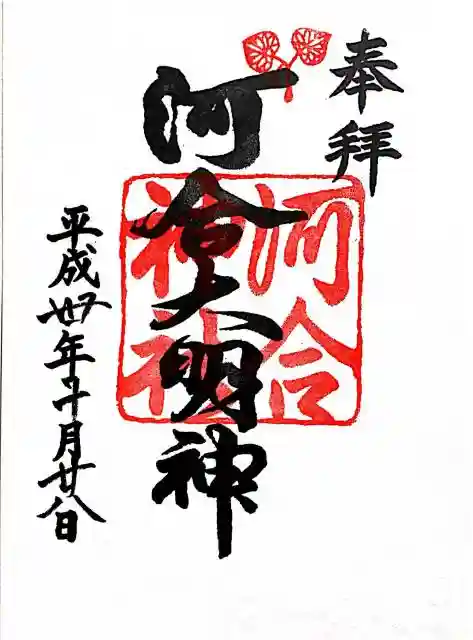 奉拝
河合大明神
河合
神社
平成丗年十月廿八日